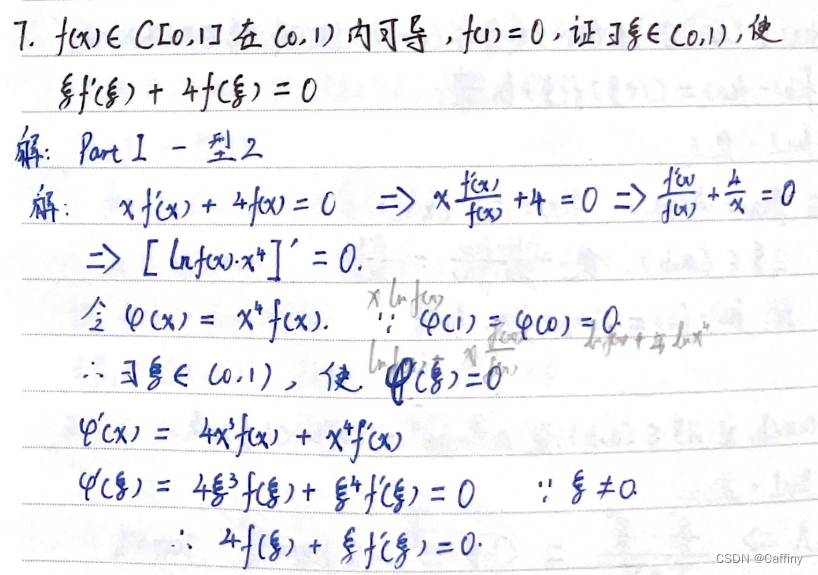 7. f(x)∈C[0,1] 在 (0,1) 内可导, f(1)=0, 证∃ξ∈(0,1), 使
ξf'(ξ) + 4f(ξ) = 0
解: Part I - 型2
解: xf'(x) + 4f(x) = 0 ⇒ x f'(x)/f(x) + 4 = 0 ⇒ f'(x)/f(x) + 4/x = 0
⇒ [ln f(x)·x⁴]' = 0.
x ln f(x)
令 φ(x) = x⁴f(x). ∵ φ(1) = φ(0) = 0.
∴ ∃ξ∈(0,1), 使 φ(ξ)=0
φ'(x) = 4x³f(x) + x⁴f'(x)
φ'(ξ) = 4ξ³f(ξ) + ξ⁴f'(ξ) = 0 ∵ ξ≠0.
∴ 4f(ξ) + ξf'(ξ) = 0.
CSDN @Caffiny